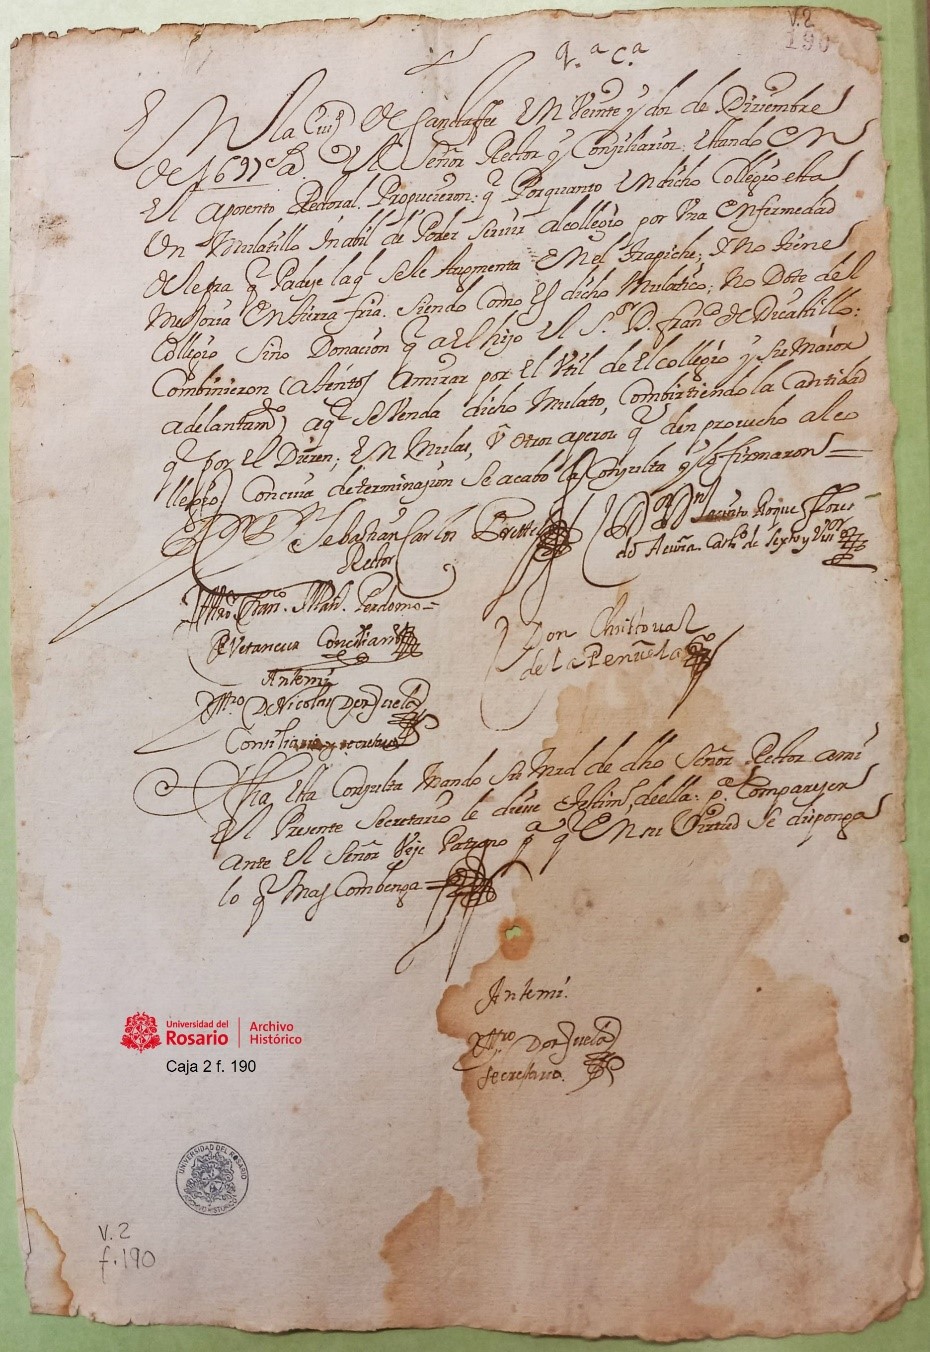 V.2
190
q.ª c.ª
EN la Ciu.d de Sanctaffee EN Veinte y dos de Diziembre
de 1697 a.s El Señor Rector y Consiliarios; estando EN
El aposento Rectoral. Propucieron: q Porquanto En dicho Collegio esta
Un Mulatillo Inabil de Poder servir al collegio por Una enfermedad
de lepra q Padeje laq sele Augmenta EN el Trapiche; Y No tiene
Mejoria EN tierra fria. Siendo como Es dicho Mulatico; No Dote del
Collegio Sino Donacion q a El hijo El S.r D. fran.co de Ducastillo:
Combinieron (atentos amirar por El Util de El collegio y su Maior
adelantam.to) aq se Venda dicho Mulato, Combirtiendo la Cantidad
q por el Dieren; EN Mulas, U otros aperos q den provecho al co
llegio) Concuia determinasion se acabo la Consulta y lo firmaron
D.r D. Sebastian Carlos Prettel
Rector
D.or D.n Jacinto Roque Flores
de Acuña. Cath.o de Sexto y Vizi.or
Mro. Fran. Math. Perdomo
Betancur Conciliario
Don Christoual
de la Peñuela
Antemi
Mro D. Nicolas Dorsuela
Consiliario y secretario
Fha Esta Consulta Mando Su Mrd de dho Señor Rector ami
El Presente Secretario le diese testim.o de ella: p.a Compareser
ante El Señor Vize Patrono p.a q EN su Virtud Se disponga
lo q Mas Combenga
Antemi.
Mro Dorsuela
secretario.
Universidad del
Rosario
Archivo
Histórico
Caja 2 f. 190
UNIVERSIDAD DEL ROSARIO
ARCHIVO HISTORICO
V. 2
f. 190